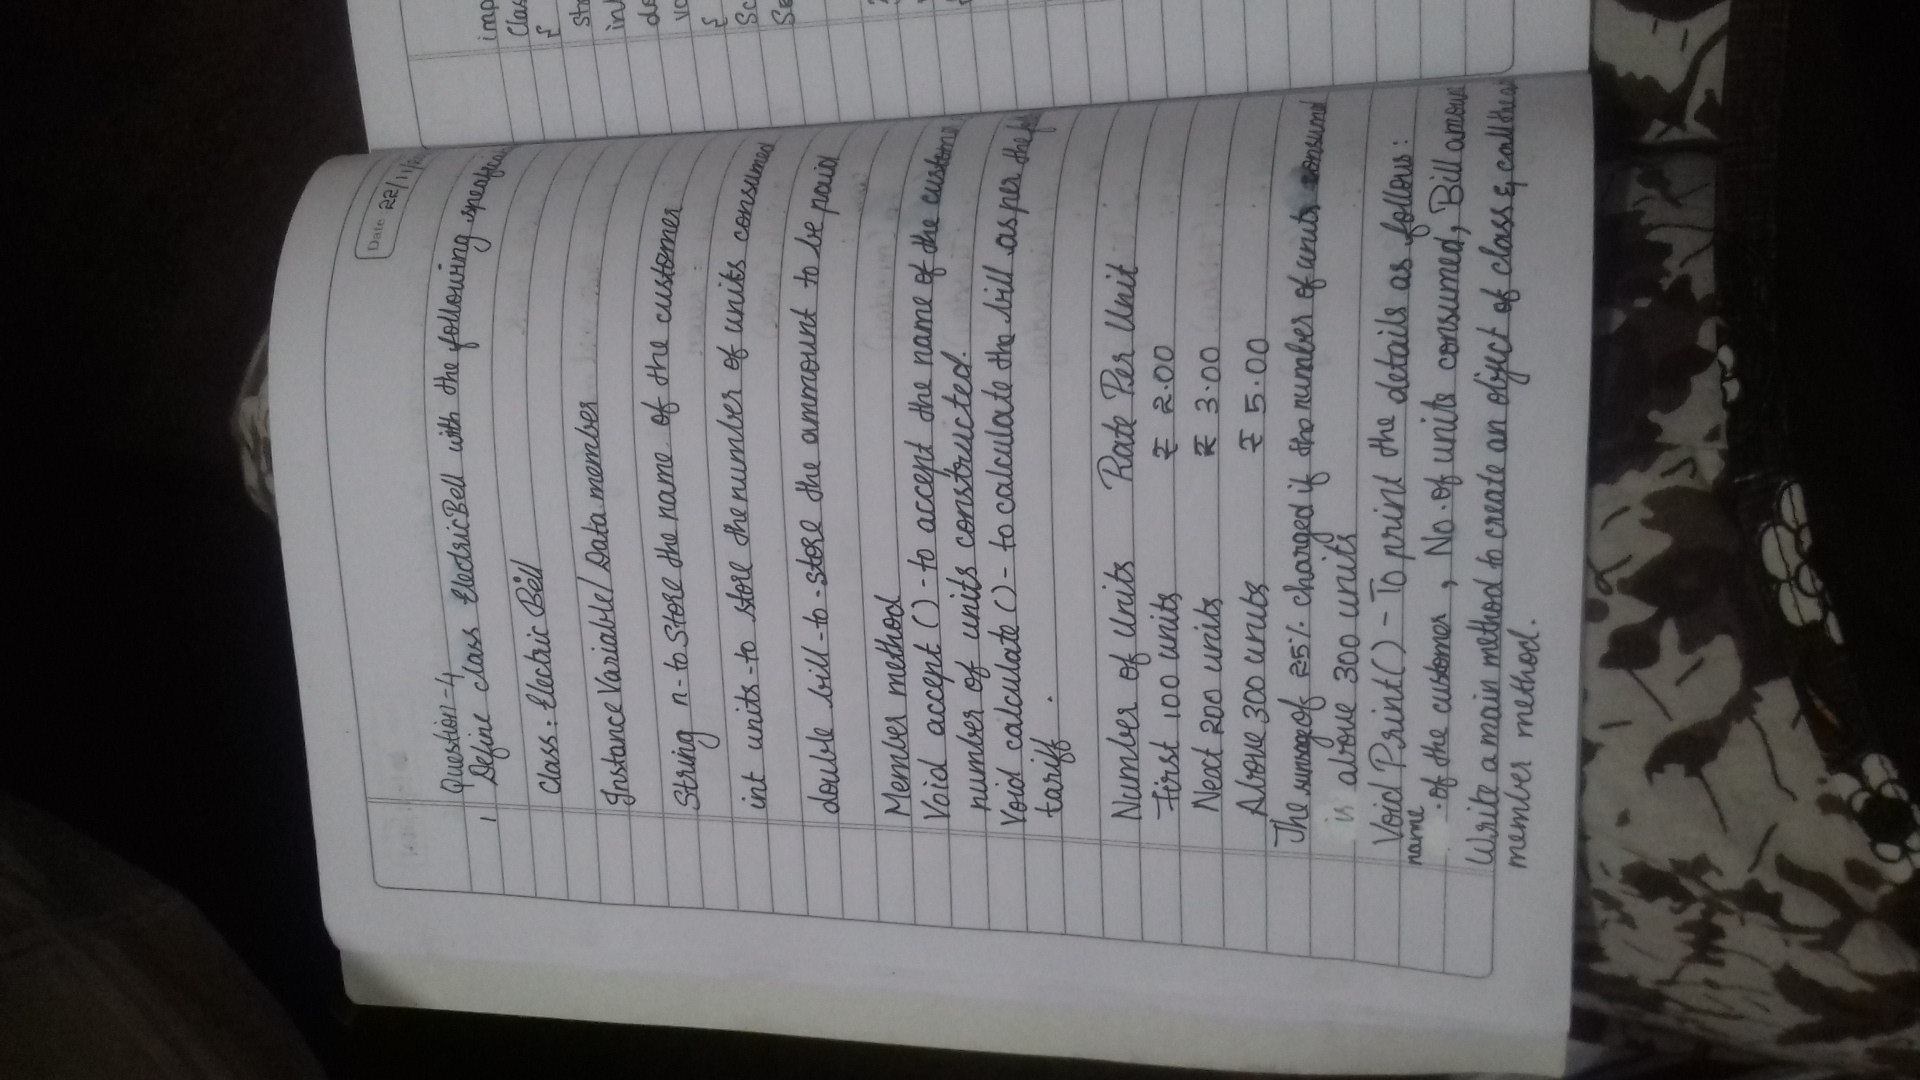 Date: 22/11/
Question-4
1 Define class ElectricBell with the following
Class: Electric Bell
Instance Variable/ Data member
String n - to Store the name of the customer
int units - to store the number of units consumed
double bill - to - store the ammount to be paid
Member method
Void accept () - to accept the name of the custome
number of units constructed.
Void calculate () - to calculate the bill as per the
tariff .
Number of Units Rate Per Unit
First 100 units ₹ 2.00
Next 200 units ₹ 3.00
Above 300 units ₹ 5.00
The of 25% charged if the number of units consumed
is above 300 units
Void Print () - To print the details as follows :
name of the customer , No. of units consumed, Bill amou
Write a main method to create an object of class & call the
member method.
imp
Clas
{
st
in
do
vo
{
Sc